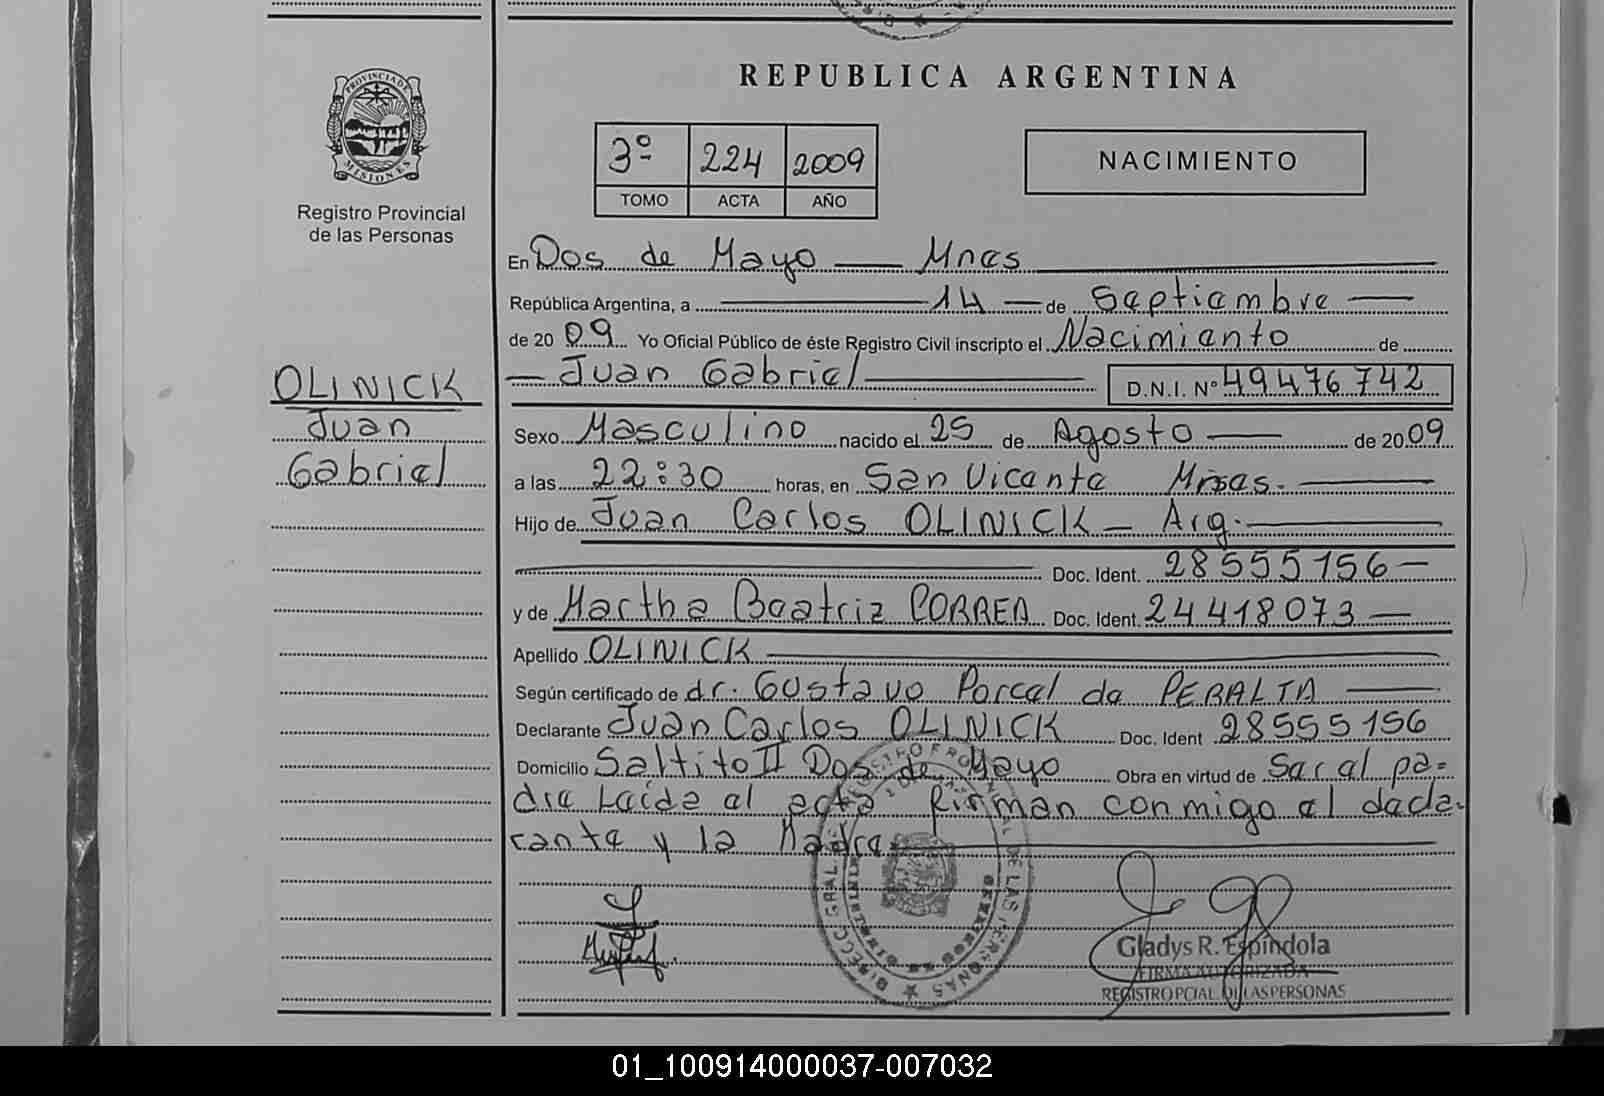 REPUBLICA ARGENTINA
PROVINCIA DE MISIONES
Registro Provincial
de las Personas
3º 224 2009
TOMO ACTA AÑO
NACIMIENTO
En Dos de Mayo — Mnes
República Argentina, a 14 — de Septiembre —
de 20 09 Yo Oficial Público de éste Registro Civil inscripto el Nacimiento de
— Juan Gabriel — D.N.I. Nº 49476742
OLINICK
Juan
Gabriel
Sexo Masculino nacido el 25 de Agosto — de 20 09
a las 22:30 horas, en San Vicente Mnes. —
Hijo de Juan Carlos OLINICK — Arg. —
Doc. Ident. 28555156 —
y de Martha Beatriz CORREA Doc. Ident. 24418073 —
Apellido OLINICK —
Según certificado de dr. Gustavo Porcel de PERALTA —
Declarante Juan Carlos OLINICK Doc. Ident 28555156
Domicilio Saltito II Dos de Mayo Obra en virtud de Ser el pa=
dre Leída el acta firman conmigo el decla-
rante y la Madre. —
Gladys R. Espíndola
FIRMA AUTORIZADA
REGISTRO PCIAL. DE LAS PERSONAS
01_100914000037-007032